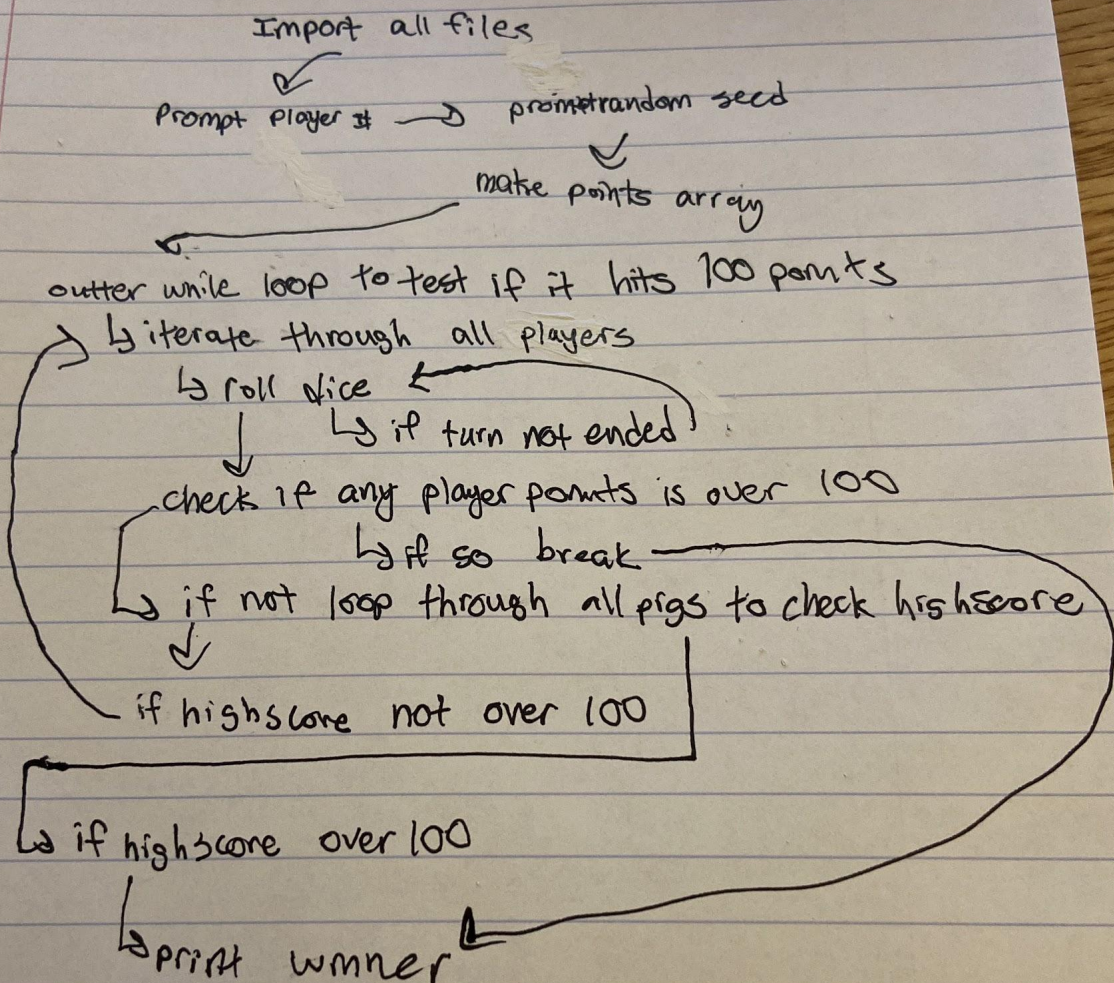 Import all files
Prompt Player # promptrandom seed
make points array
outter while loop to test if it hits 100 points
iterate through all players
roll dice
if turn not ended
check if any player points is over 100
if so break
if not loop through all pigs to check highscore
if highscore not over 100
if highscore over 100
print winner